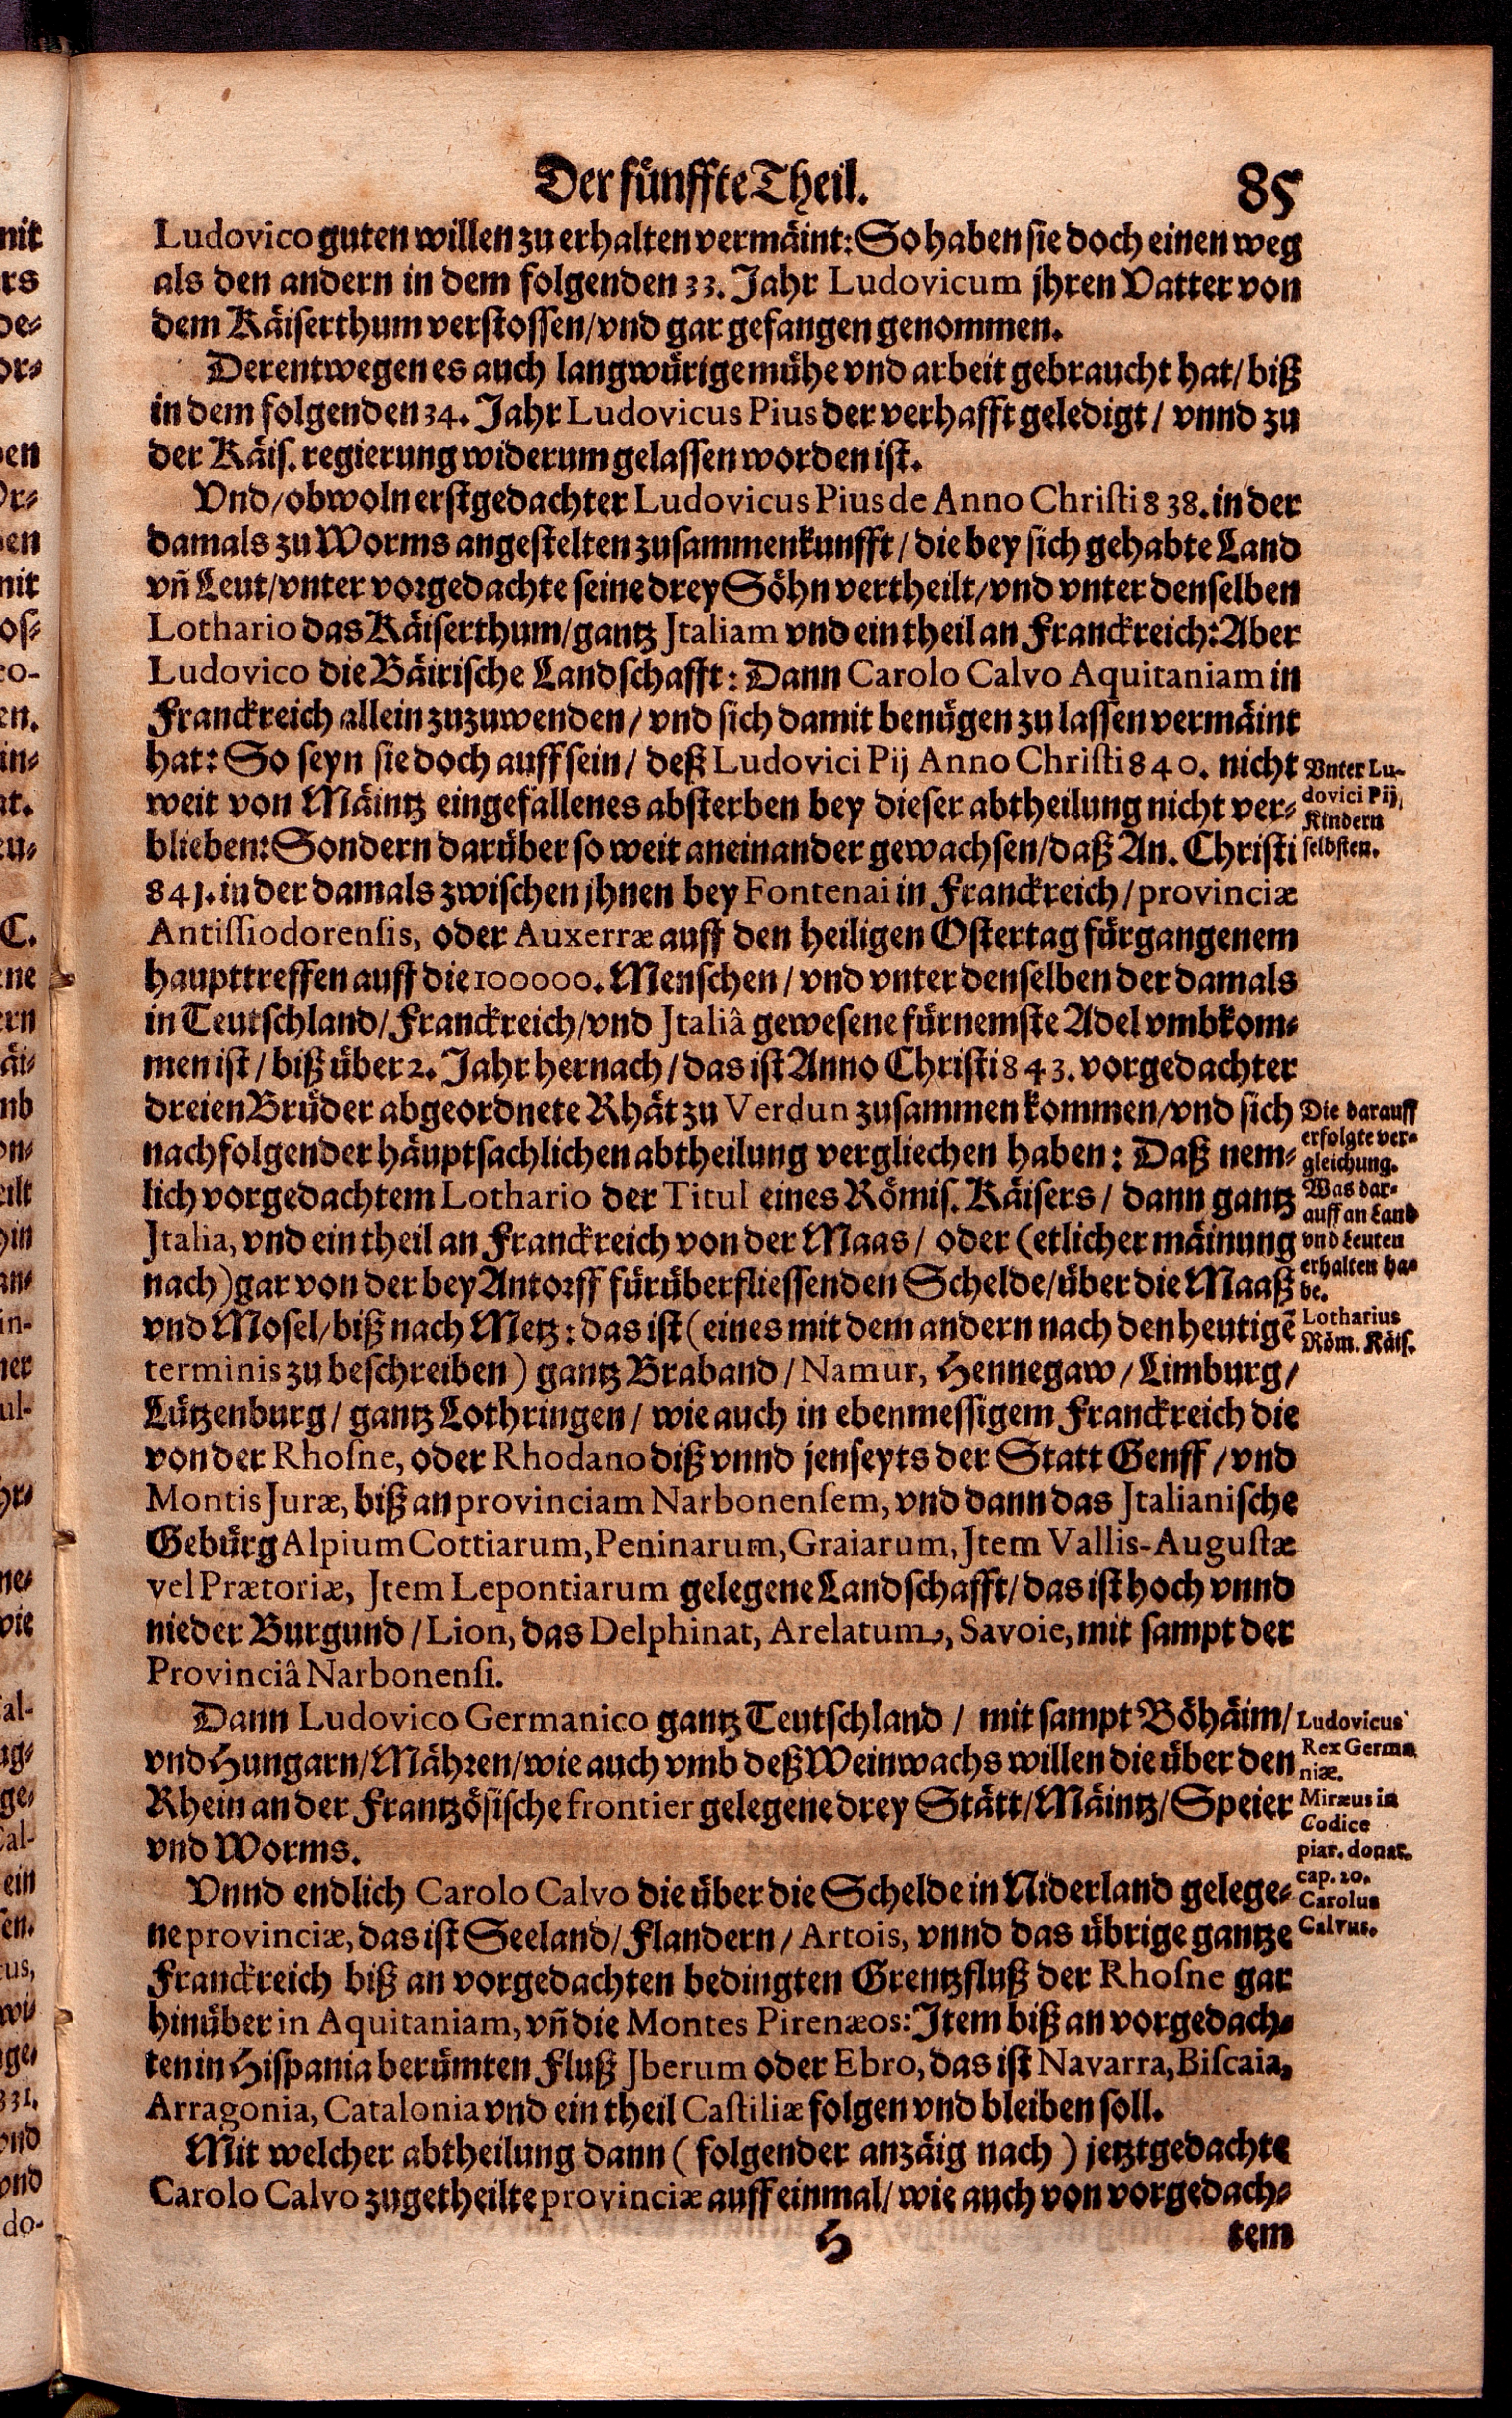 Der fünffte Theil. 85
Ludovico guten willen zu erhalten vermäint: So haben sie doch einen weg
als den andern in dem folgenden 33. Jahr Ludovicum jhren Vatter von
dem Käiserthum verstossen/vnd gar gefangen genommen.
Derentwegen es auch langwürige mühe vnd arbeit gebraucht hat/biß
in dem folgenden 34. Jahr Ludovicus Pius der verhafft geledigt/ vnnd zu
der Käis. regierung widerum gelassen worden ist.
Vnd/obwoln erstgedachter Ludovicus Pius de Anno Christi 838. in der
damals zu Worms angestelten zusammenkunfft/die bey sich gehabte Land
vñ Leut/vnter vorgedachte seine drey Söhn vertheilt/vnd vnter denselben
Lothario das Käiserthum/gantz Jtaliam vnd ein theil an Franckreich: Aber
Ludovico die Bäirische Landschafft: Dann Carolo Calvo Aquitaniam in
Franckreich allein zuzuwenden/vnd sich damit benügen zu lassen vermäint
hat: So seyn sie doch auff sein/ deß Ludovici Pij Anno Christi 840. nicht
weit von Mäintz eingefallenes absterben bey dieser abtheilung nicht ver-
blieben: Sondern darüber so weit aneinander gewachsen/daß An. Christi
841. in der damals zwischen jhnen bey Fontenai in Franckreich/provinciæ
Antissiodorensis, oder Auxerræ auff den heiligen Ostertag fürgangenem
haupttreffen auff die 100000. Menschen/vnd vnter denselben der damals
in Teutschland/Franckreich/vnd Jtaliâ gewesene fürnemste Adel vmbkom-
men ist/biß über 2. Jahr hernach/das ist Anno Christi 843. vorgedachter
dreien Brüder abgeordnete Rhät zu Verdun zusammen kommen/vnd sich
nachfolgender häuptsachlichen abtheilung vergliechen haben: Daß nem-
lich vorgedachtem Lothario der Titul eines Römis. Käisers/ dann gantz
Jtalia, vnd ein theil an Franckreich von der Maas/ oder (etlicher mäinung
nach) gar von der bey Antorff fürüberfliessenden Schelde/über die Maaß
vnd Mosel/biß nach Metz: das ist (eines mit dem andern nach den heutigẽ
terminis zu beschreiben) gantz Braband/Namur, Hennegaw/Limburg/
Lützenburg/gantz Lothringen/ wie auch in ebenmessigem Franckreich die
von der Rhosne, oder Rhodano diß vnnd jenseyts der Statt Genff/vnd
Montis Juræ, biß an provinciam Narbonensem, vnd dann das Jtalianische
Gebürg Alpium Cottiarum, Peninarum, Graiarum, Jtem Vallis-Augustæ
vel Prætoriæ, Jtem Lepontiarum gelegene Landschafft/das ist hoch vnnd
nieder Burgund/Lion, das Delphinat, Arelatum, Savoie, mit sampt der
Provinciâ Narbonensi.
Dann Ludovico Germanico gantz Teutschland/ mit sampt Böhäim/
vnd Hungarn/Mähren/wie auch vmb deß Weinwachs willen die über den
Rhein an der Frantzösische frontier gelegene drey Stätt/Mäintz/Speier
vnd Worms.
Vnnd endlich Carolo Calvo die über die Schelde in Niderland gelege-
ne provinciæ, das ist Seeland/Flandern/Artois, vnnd das übrige gantze
Franckreich biß an vorgedachten bedingten Grentzfluß der Rhosne gar
hinüber in Aquitaniam, vñ die Montes Pirenæos: Jtem biß an vorgedach-
ten in Hispania berümten Fluß Jberum oder Ebro, das ist Navarra, Biscaia,
Arragonia, Catalonia vnd ein theil Castiliæ folgen vnd bleiben soll.
Mit welcher abtheilung dann (folgender anzäig nach) jetztgedachte
Carolo Calvo zugetheilte provinciæ auff einmal/wie auch von vorgedach-
H tem
Vnter Lu-
dovici Pij,
Kindern
selbsten.
Die darauff
erfolgte ver-
gleichung.
Was dar-
auff an Land
vnd Leuten
erhalten ha-
be.
Lotharius
Röm. Käis.
Ludovicus
Rex Germa
niæ.
Miræus in
Codice
piar. donat.
cap. 20.
Carolus
Calvus.